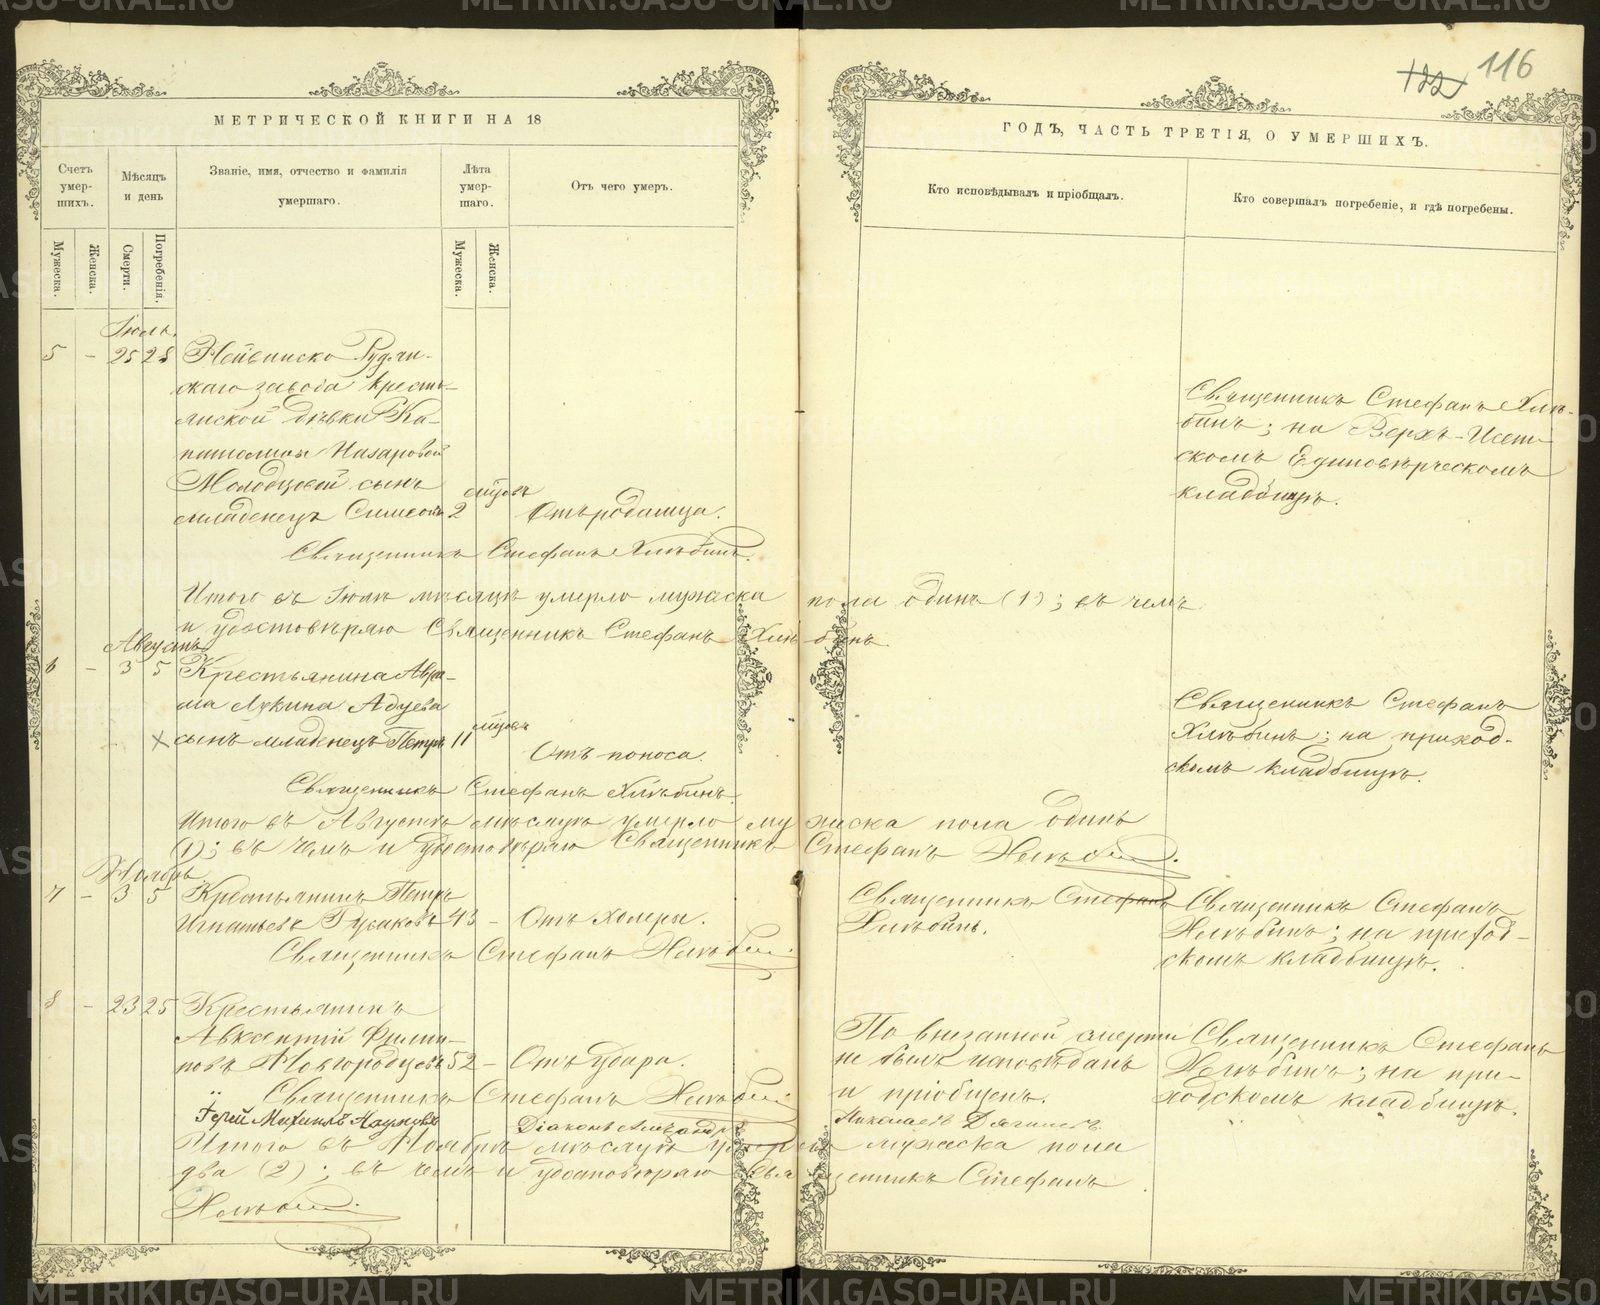 116
122
МЕТРИЧЕСКОЙ КНИГИ НА 18
ГОДЪ, ЧАСТЬ ТРЕТІЯ, О УМЕРШИХЪ.
Счетъ умер-шихъ.
Мѣсяцъ и день
Званіе, имя, отчество и фамилія умершаго.
Лѣта умер-шаго.
Отъ чего умеръ.
Кто исповѣдывалъ и пріобщалъ.
Кто совершалъ погребеніе, и гдѣ погребены.
Мужеска.
Женска.
Смерти.
Погребенія.
Мужеска.
Женска.
Іюль.
5 – 25 28 Нейвинско Рудян-
скаго завода кресть-
янской дѣвки Ка-
питолины Назаровой
Молодцовой сынъ
младенецъ Симеонъ 2 мѣсяц. Отъ родимца.
Священникъ Стефанъ Хлѣбинъ; на Верхъ-Исет-
скомъ Единовѣрческомъ
кладбищѣ.
Священникъ Стефанъ Хлѣбинъ.
Итого въ Іюлѣ мѣсяцѣ умерло мужеска пола одинъ (1); въ чемъ
и удостовѣряю Священникъ Стефанъ Хлѣбинъ.
Августъ
6 – 3 5 Крестьянина Авра-
ма Лукина Адуева
сынъ младенецъ Петръ 11 мѣсяц. Отъ поноса.
Священникъ Стефанъ
Хлѣбинъ; на приход-
скомъ кладбищѣ.
Священникъ Стефанъ Хлѣбинъ.
Итого въ Августѣ мѣсяцѣ умерло мужеска пола одинъ
(1); въ чемъ и удостовѣряю Священникъ Стефанъ Хлѣбинъ.
Ноябрь
7 – 3 5 Крестьянинъ Петръ
Игнатьевъ Гусаковъ 43 – Отъ холеры.
Священникъ Стефанъ
Хлѣбинъ.
Священникъ Стефанъ
Хлѣбинъ; на приход-
скомъ кладбищѣ.
Священникъ Стефанъ Хлѣбинъ.
8 – 23 25 Крестьянинъ
Авксентій Филип-
повъ Новгородцовъ 52 – Отъ удара.
По внезапной смерти
не былъ исповѣданъ
и пріобщенъ.
Священникъ Стефанъ
Хлѣбинъ; на при-
ходскомъ кладбищѣ.
Священникъ Стефанъ Хлѣбинъ.
Іерей Михаилъ Наумовъ Діаконъ Александръ
Итого въ Ноябрѣ мѣсяцѣ умерло мужеска пола
два (2); въ чемъ и удостовѣряю Священникъ Стефанъ
Хлѣбинъ.
METRIKI.GASO-URAL.RU